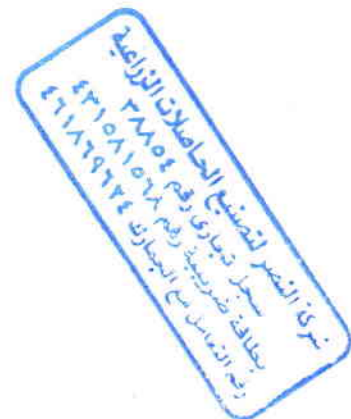 شركة النصر لتصنيع الحاصلات الزراعية
سجل تجارى رقم ٣٨٨٥٤
بطاقة ضريبية رقم ٤٣١٥٨١٥٦٨
رقم التعامل مع الجمارك ٤٦١٨٦٩٦٢٤